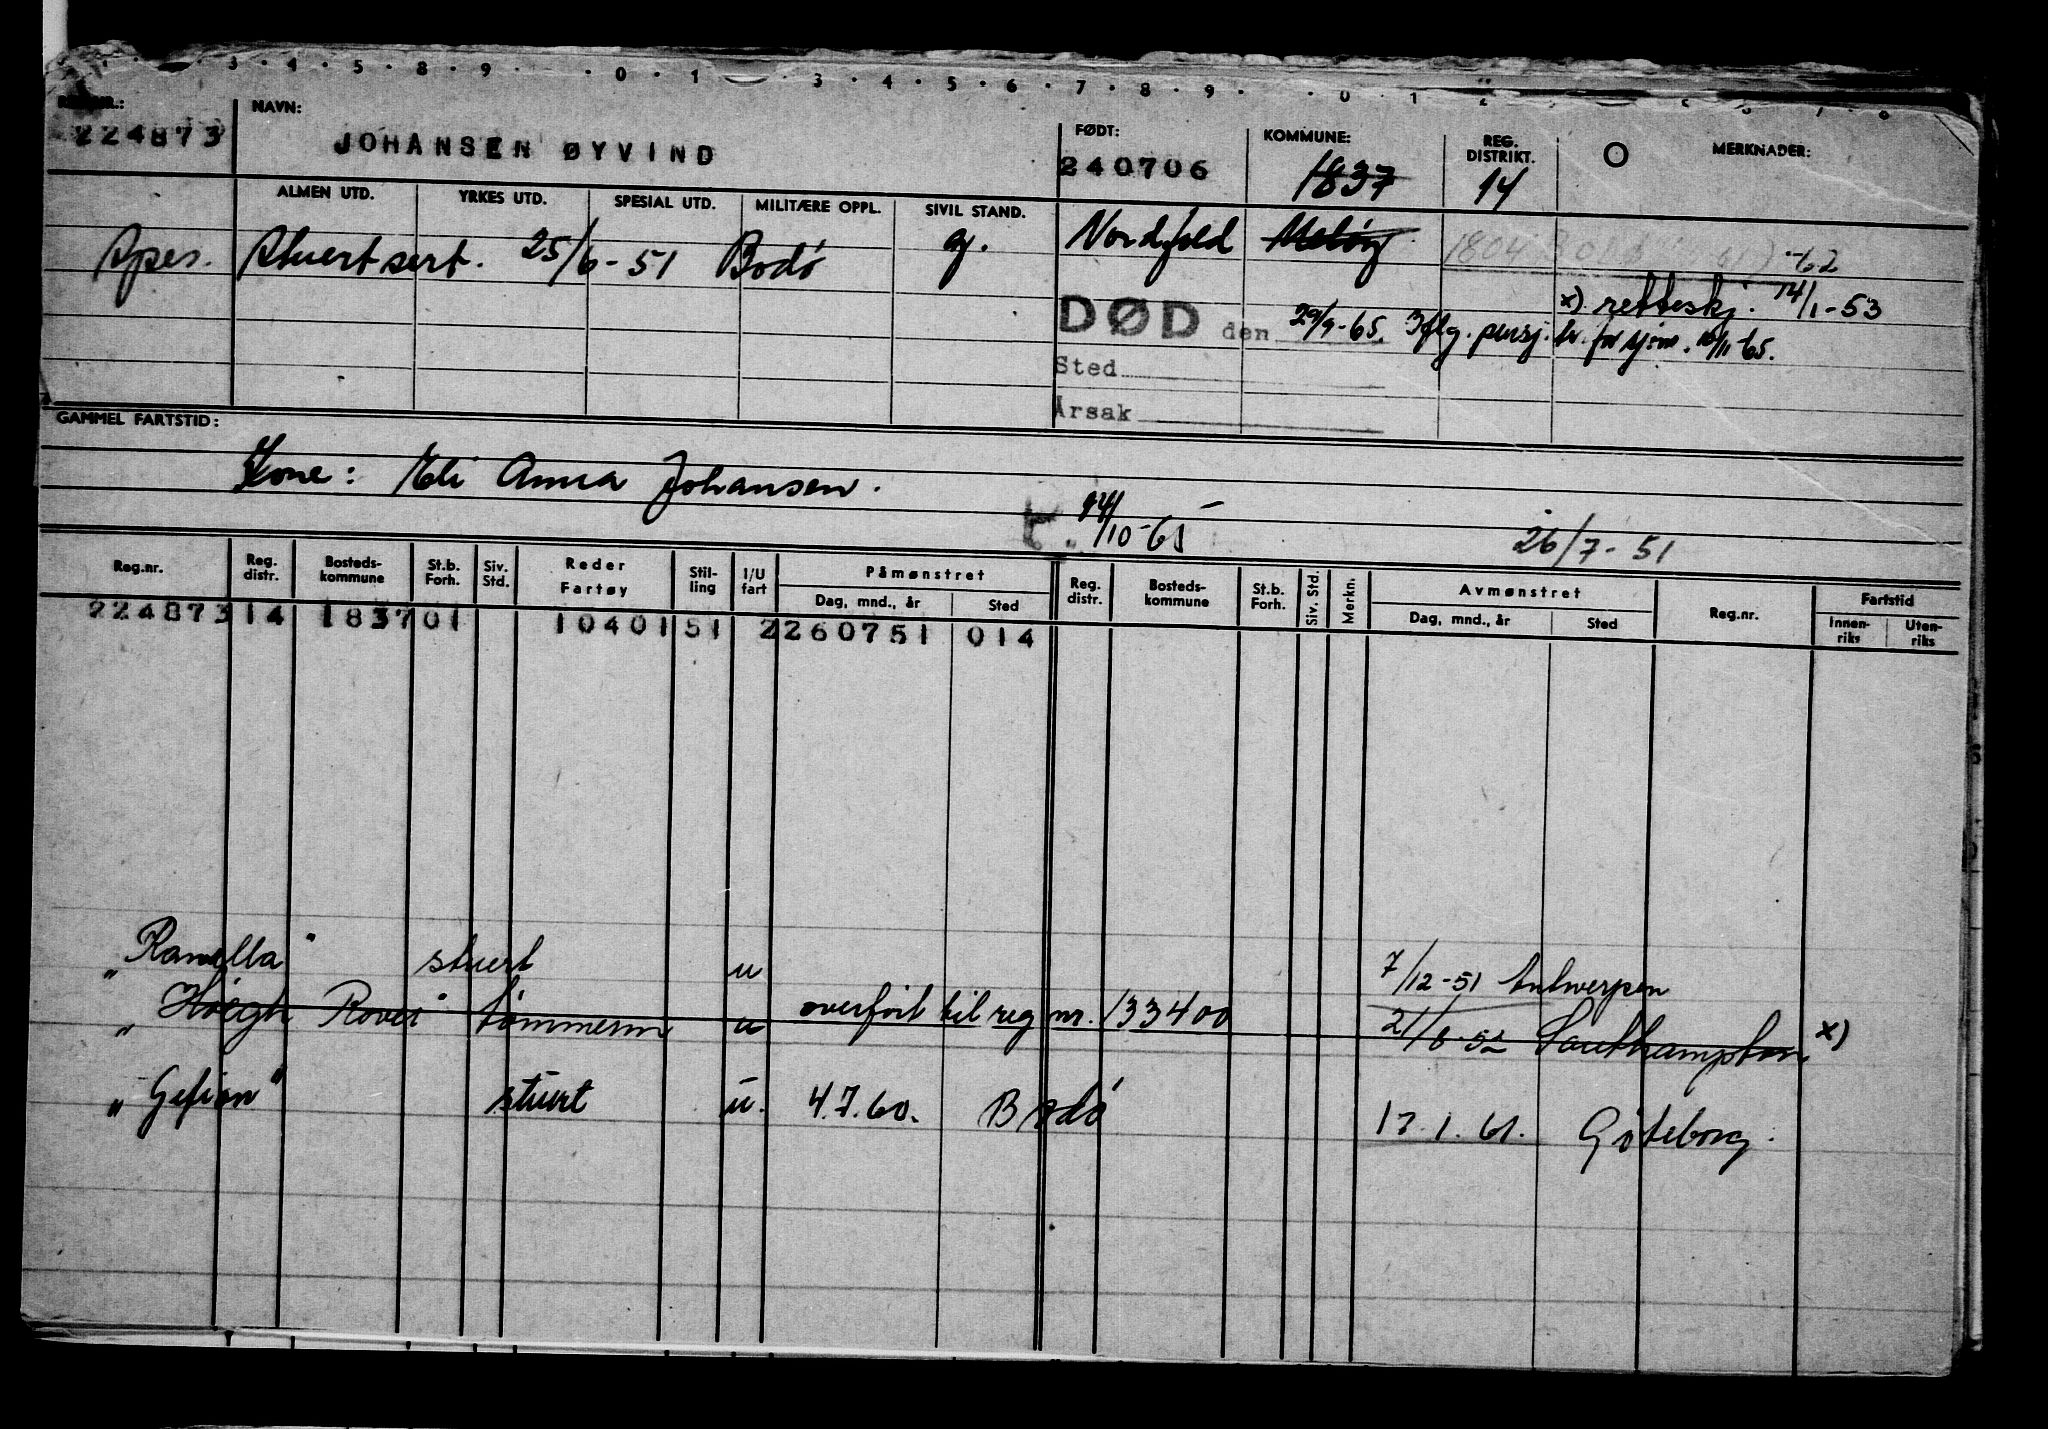 3 . 4 . 5 . 8 . 9 . 0 . 1 . 3 . 4 . 5 . 6 . 7 . 8 . 9 . 0 . 1
NAVN: FØDT: KOMMUNE: REG. DISTRIKT. MERKNADER:
224873 JOHANSEN ØYVIND 240706 1837 14
ALMEN UTD. YRKES UTD. SPESIAL UTD. MILITÆRE OPPL. SIVIL STAND.
Stuertsert. 25/6-51 Bodö g. Nordfold Meløy 1804
x) retteskj. 14/1-53
DØD den 29/9-65. Iflg. pensj.
Sted
Årsak
GAMMEL FARTSTID:
Kone: Eli Anna Johansen.
/10-65 26/7-51
Reg.nr. Reg. distr. Bosteds-kommune St.b. Forh. Siv. Std. Reder Fartøy Stil-ling I/U fart Påmønstret Dag, mnd., år Sted Reg. distr. Bosteds-kommune St.b. Forh. Siv. Std. Merkn. Avmønstret Dag, mnd., år Sted Reg.nr. Fartstid Innen-riks Uten-riks
224873 14 1837 01 10401 51 2 260751 014
"Ranella" stuert u 7/12-51 Antwerpen
"Höegh Rover" tømmerm u overført til reg nr. 133400 21/8-52 Southampton x)
"Gefion" stuert u. 4.7.60. Bodö 17.1.61. Göteborg.